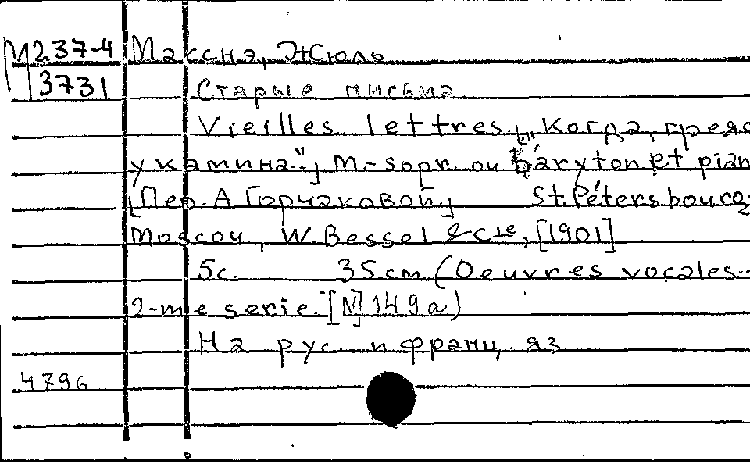 М237-4 Массне, Жюль
3731 Старые письма
Vieilles lettres. [„Когда, грея
у камина“], M.-sopr. ou baryton et pian
[Пер. А Горчаковой] St. Pétersbourg,
Moscou, W. Bessel & Cie, [1901]
5с. 35cm (Oeuvres vocales-
2-me serie. [N] 149a)
На рус. и франц. яз
4796